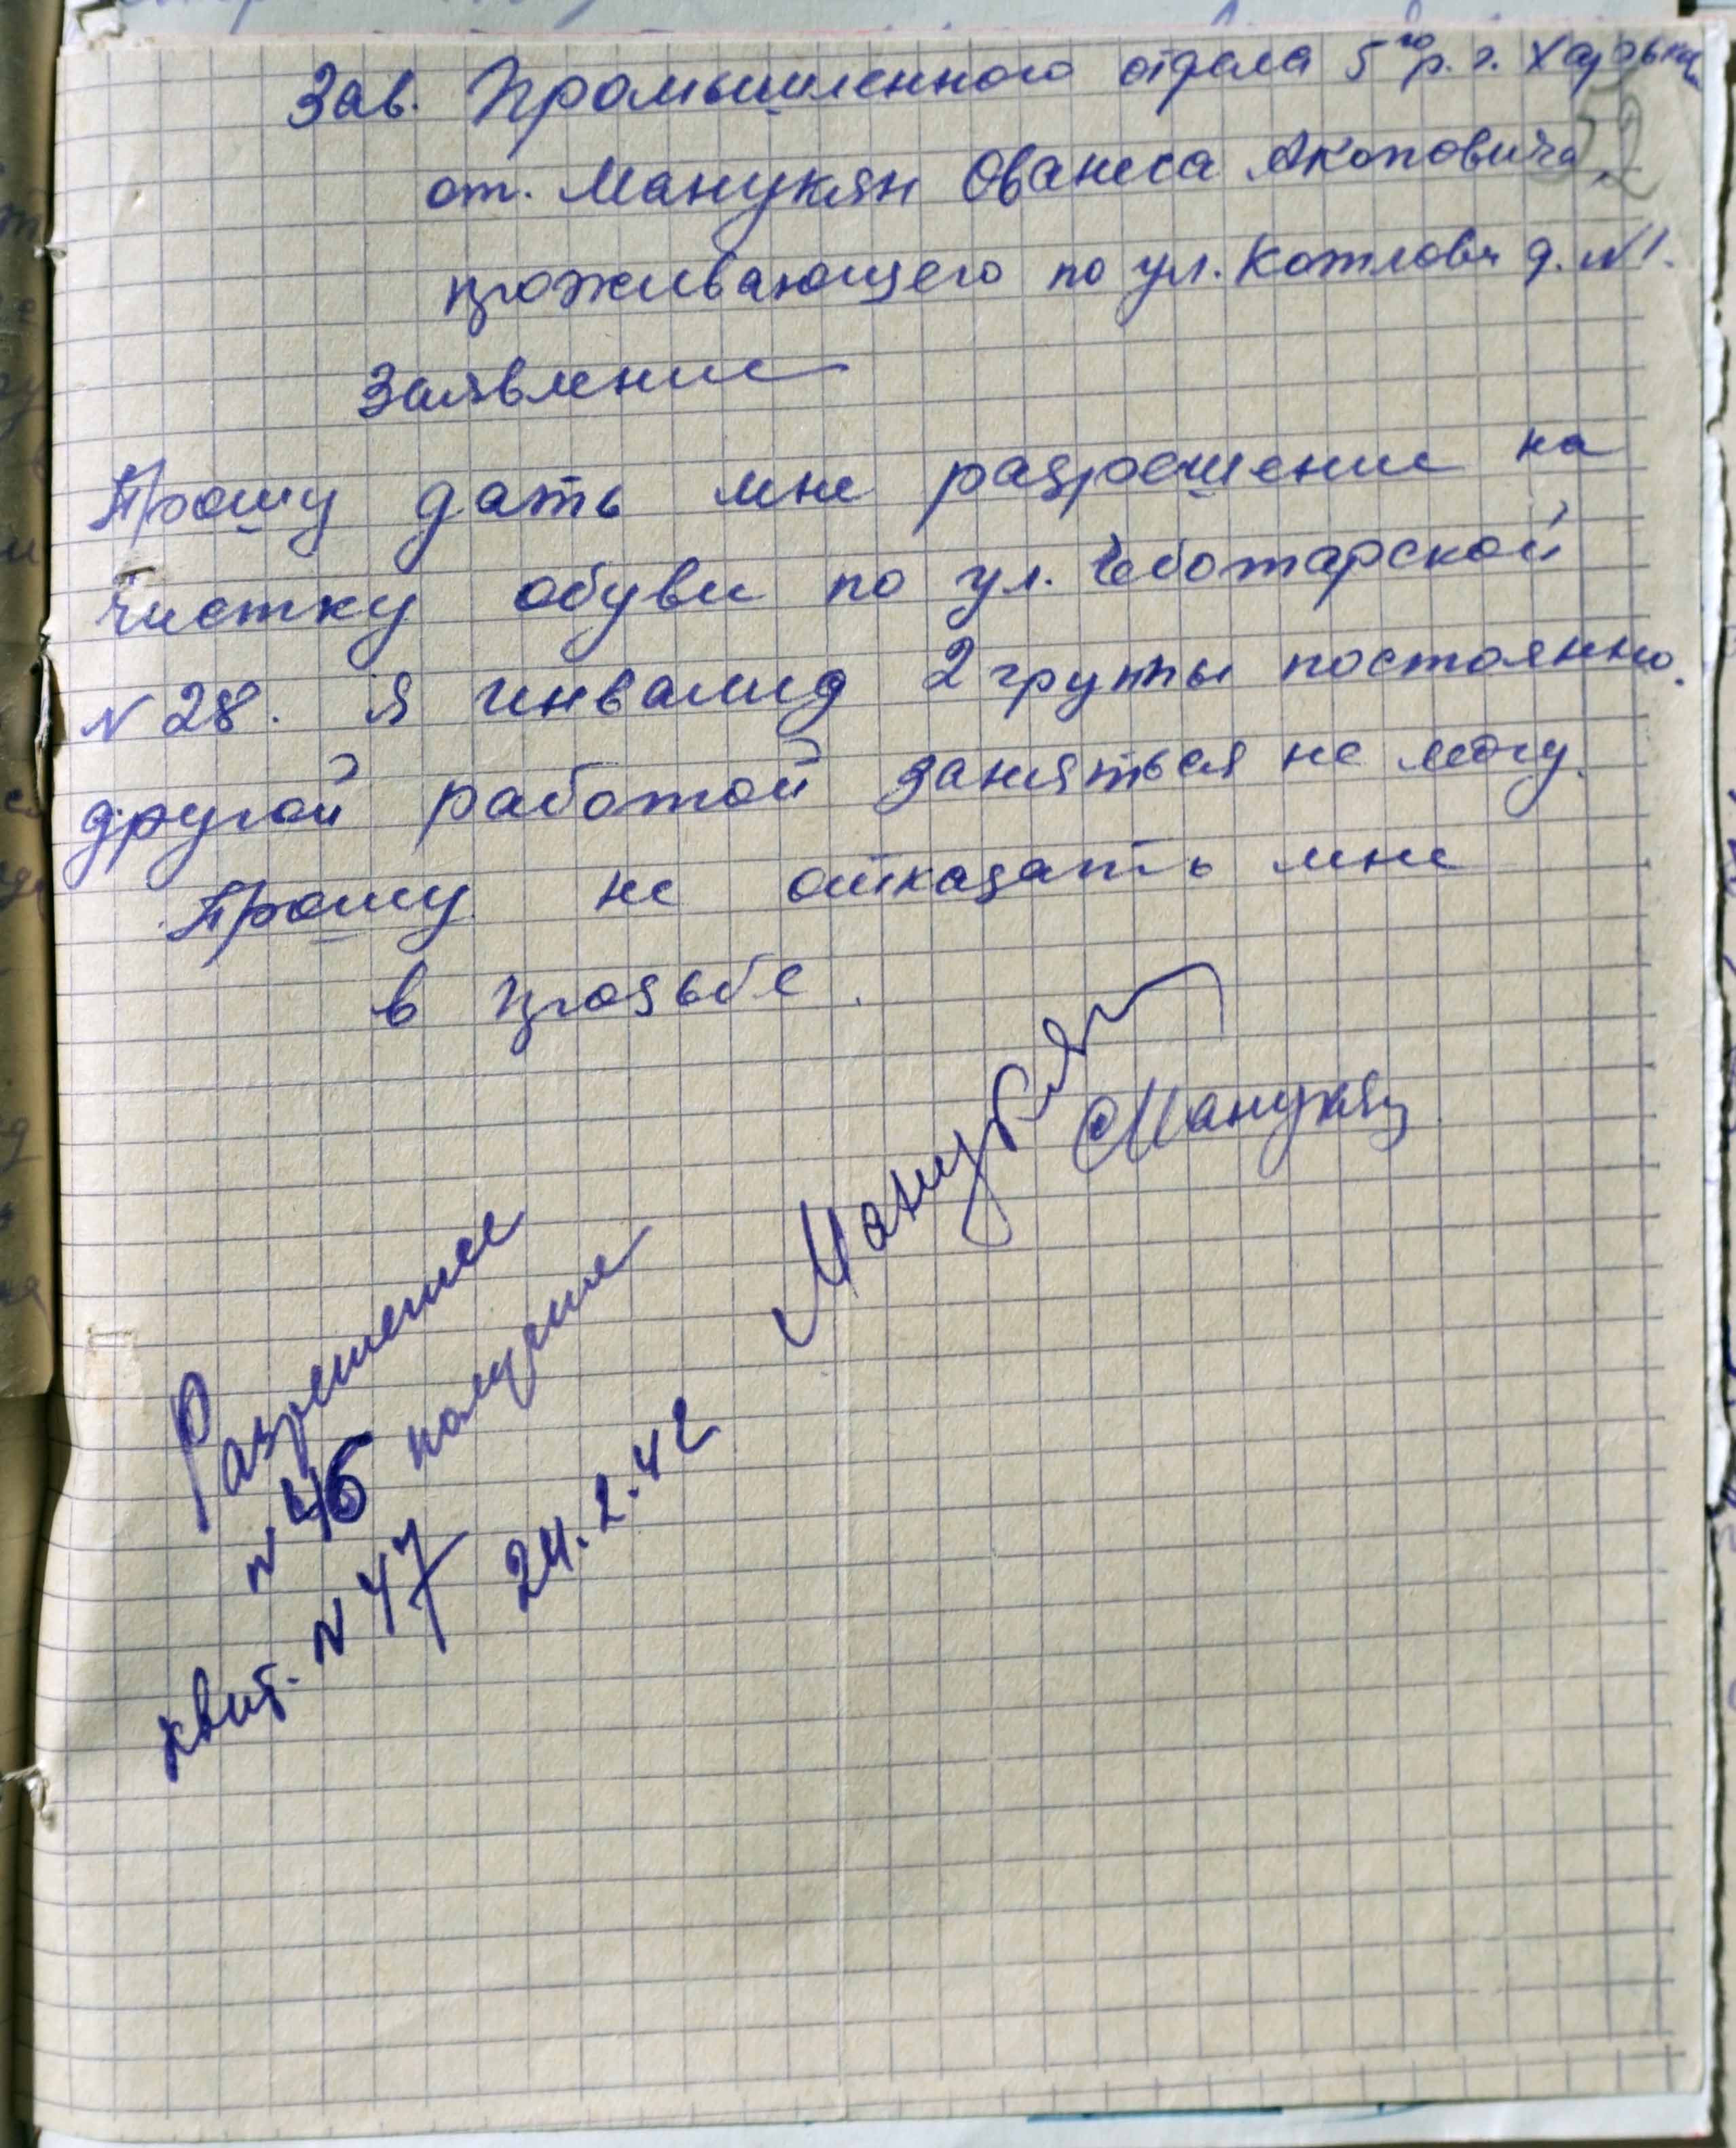 Зав. Промышленного отдела 5го р. г. Харькова
52
от. Манукян Ованеса Акоповича
проживающего по ул. Котлова д. N1.
Заявление
Прошу дать мне разрешение на
чистку обуви по ул. Чеботарской
N 28. Я инвалид 2 группы постоянно.
другой работой заняться не могу.
Прошу не отказать мне
в прозьбе.
Манукян
Манукян
Разрешение
N 46 получил
квит. N 47 24.2.42